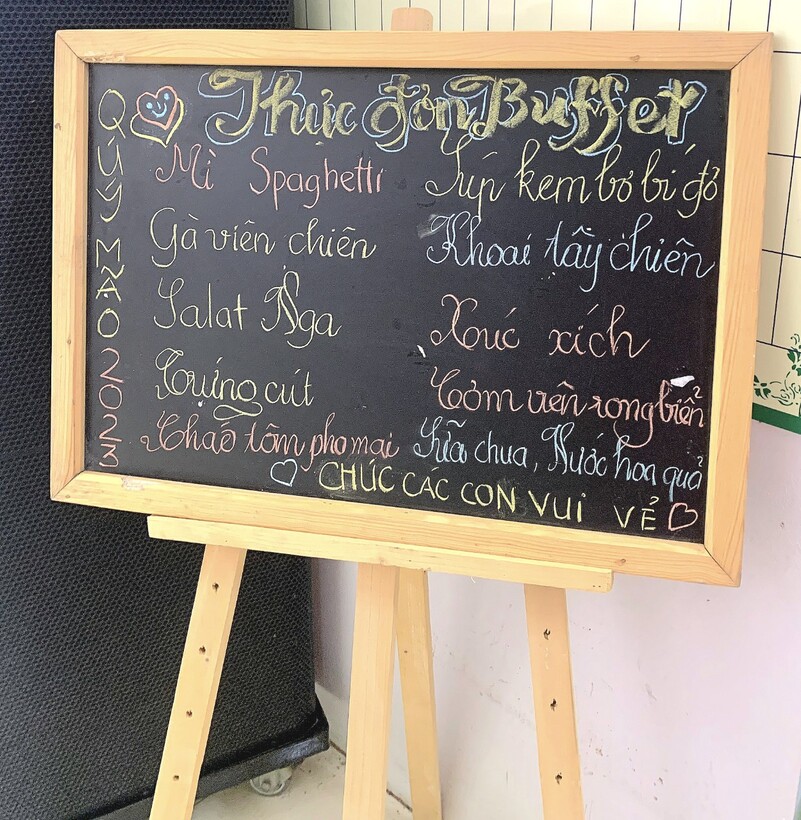 Thực đơn Buffet
QUÝ MÃO 2023
Mì Spaghetti
Súp kem bơ bí đỏ
Gà viên chiên
Khoai tây chiên
Salat Nga
Xúc xích
Trứng cút
Tôm viên rong biển
Chạo tôm pho mai
Sữa chua, Nước hoa quả
CHÚC CÁC CON VUI VẺ